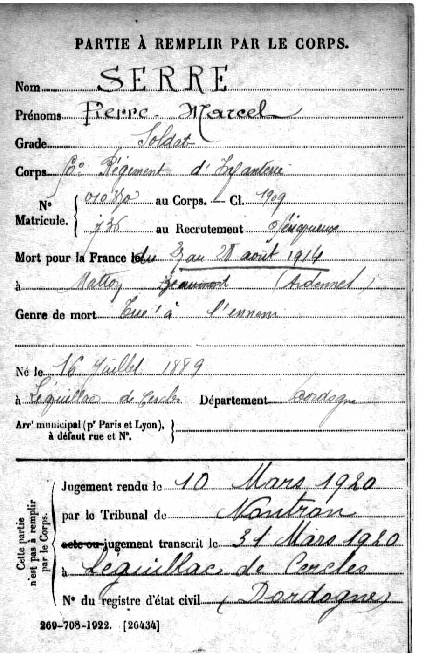 PARTIE À REMPLIR PAR LE CORPS.
Nom SERRE
Prénoms Pierre Marcel
Grade Soldat
Corps Régiment d'Infanterie
N° Matricule. { au Corps. — Cl. 1909
au Recrutement Périgueux
Mort pour la France le au 28 août 1914
à Matton (Ardennes)
Genre de mort Tué à l'ennemi
Né le 16 Juillet 1889
à Léguillac de Cercles Département Dordogne
Arr^t municipal (p^r Paris et Lyon), à défaut rue et N°. }
Cette partie n'est pas à remplir par le Corps.
Jugement rendu le 10 Mars 1920
par le Tribunal de Nontron
acte ou jugement transcrit le 31 Mars 1920
à Léguillac de Cercles
N° du registre d'état civil (Dordogne)
269-708-1922. [26434]